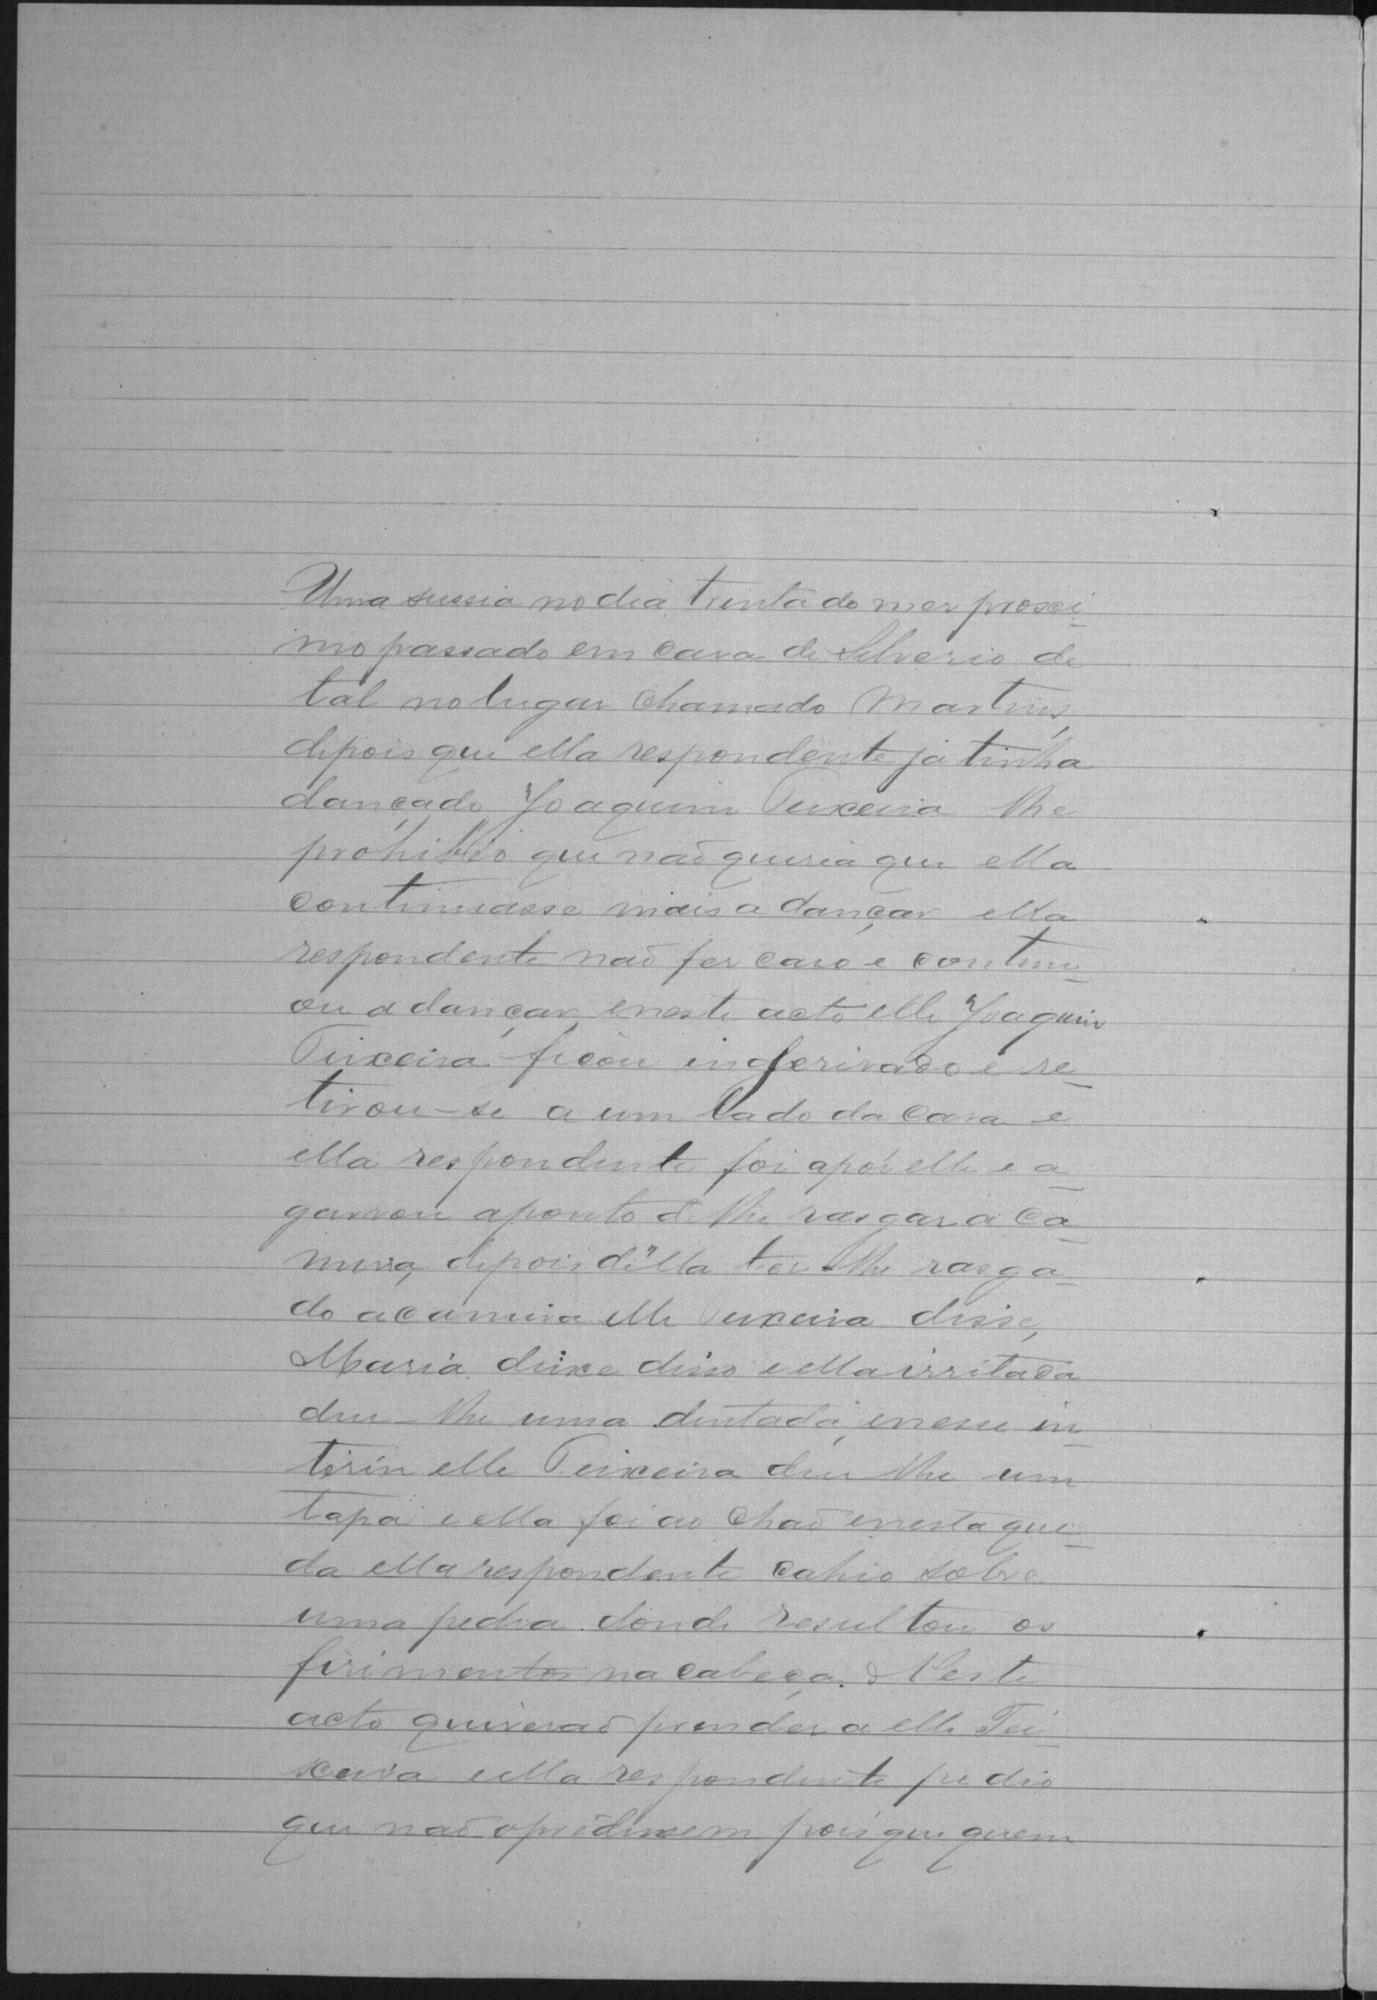 Uma sussia no dia trinta do mez proxi_
mo passado em caza de Silverio de
tal no lugar chamado Martins,
depois que ella respondente já tinha
dançado Joaquim Teixeira lhe
prohibio que não queria que ella
continuasse mais a dançar ella
respondente não fez caso e continu_
ou a dançar, e neste acto elle Joaquim
Teixeira ficou inferivado e re_
tirou-se a um lado da casa e
ella respondente foi apóz elle e a_
garrou aponto de lhe rasgar a ca_
miza, depois d'ella ter-lhe rasga_
do a camiza elle Teixeira disse,
Maria deixe disso e ella irritada
deu-lhe uma dentada, e nesse in_
terin elle Teixeira deu lhe um
tapa e ella foi ao chaõ e nesta que_
da ella respondente cahio sobre
uma pedra donde resultou os
ferimentos na cabeça. Neste
acto quizeraõ prender a elle Tei_
xeira e ella respondente pedio
que naõ o prendessem pois que quem